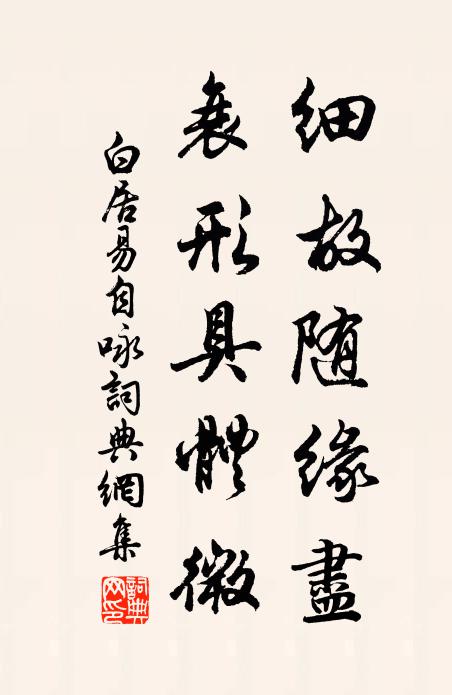 细故随缘盡
衰形具體微
白居易自咏詞典網集
詞典網印